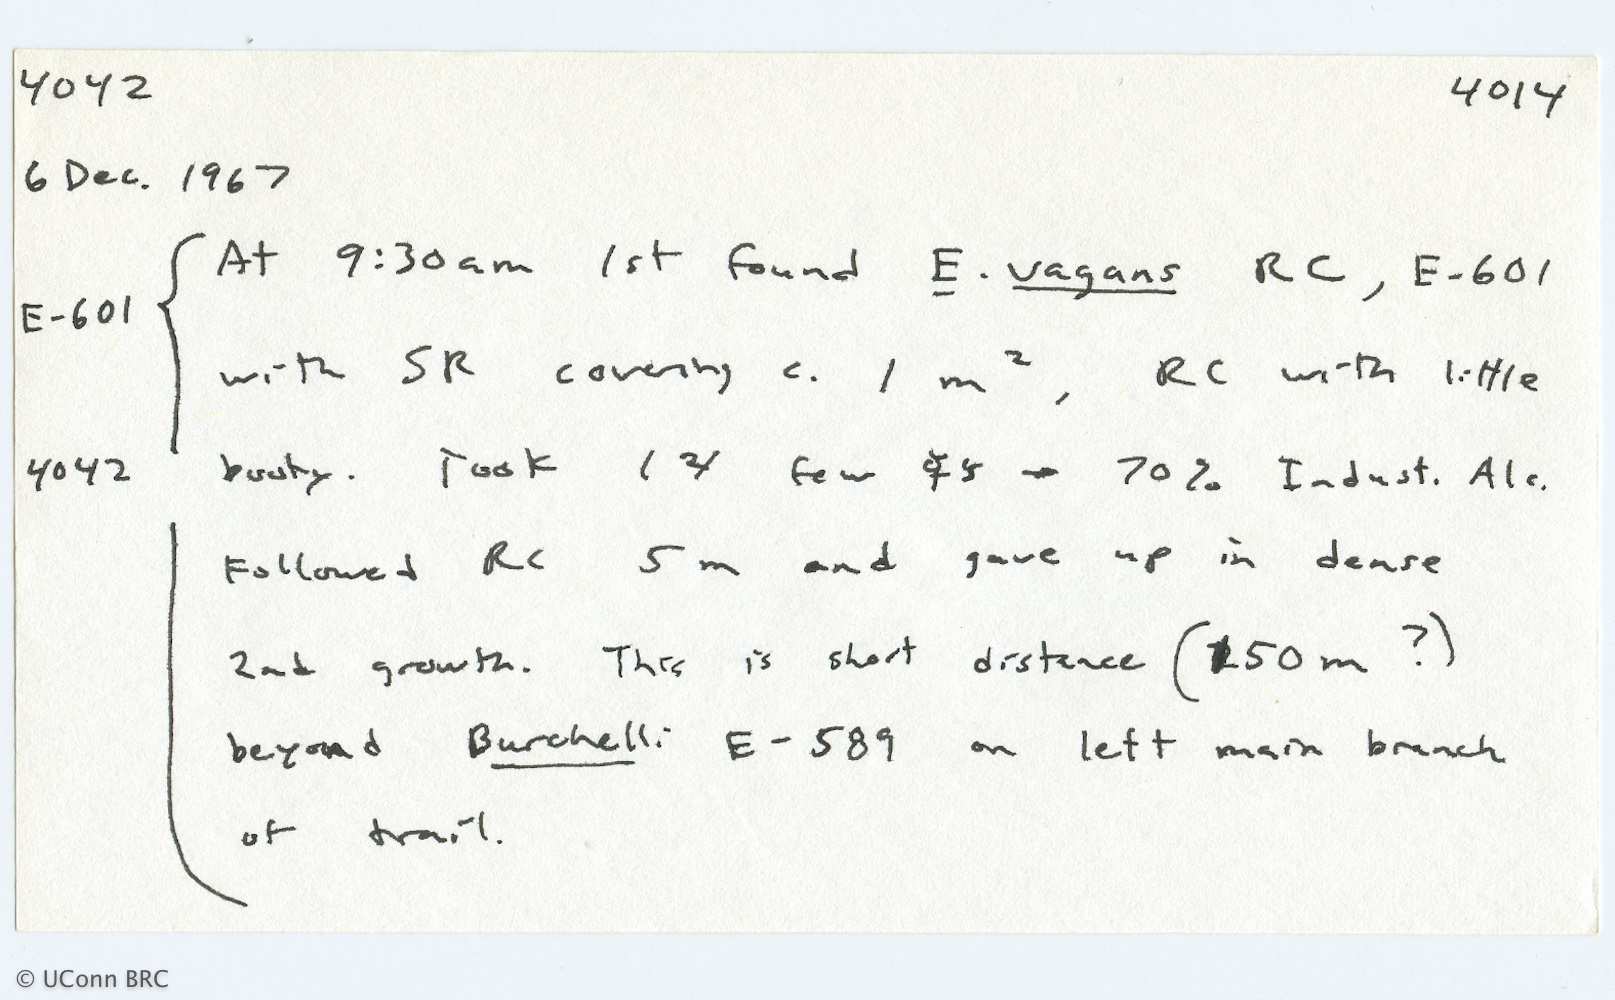 4042 4014
6 Dec. 1967
At 9:30am 1st found E. vagans RC, E-601
E-601
with SR covering c. 1 m², RC with little
4042 booty. Took 1 ♃ few ☿s → 70% Indust. Alc.
Followed RC 5 m and gave up in dense
2nd growth. This is short distance (150 m ?)
beyond Burchelli E-589 on left main branch
of trail.
© UConn BRC